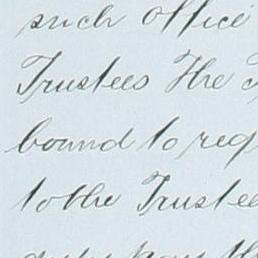 such office
Trustees The
bound to req
to the Trustee